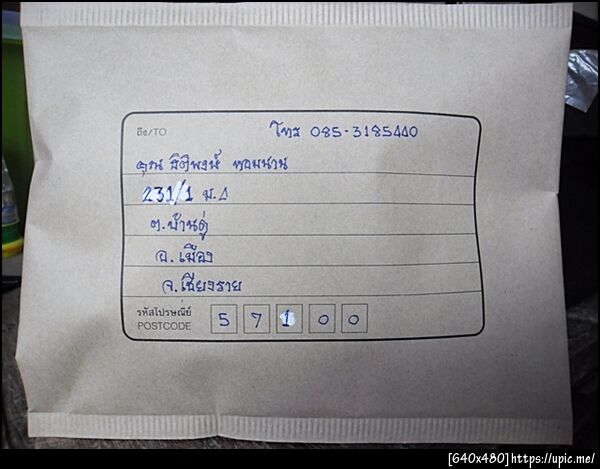 ถึง/TO โทร 085-3185440
คุณ ธิติพงษ์ หอมนาน
231/1 ม.4
ต.บ้านดู่
อ.เมือง
จ.เชียงราย
รหัสไปรษณีย์
POSTCODE 5 7 1 0 0
[640x480]https://upic.me/